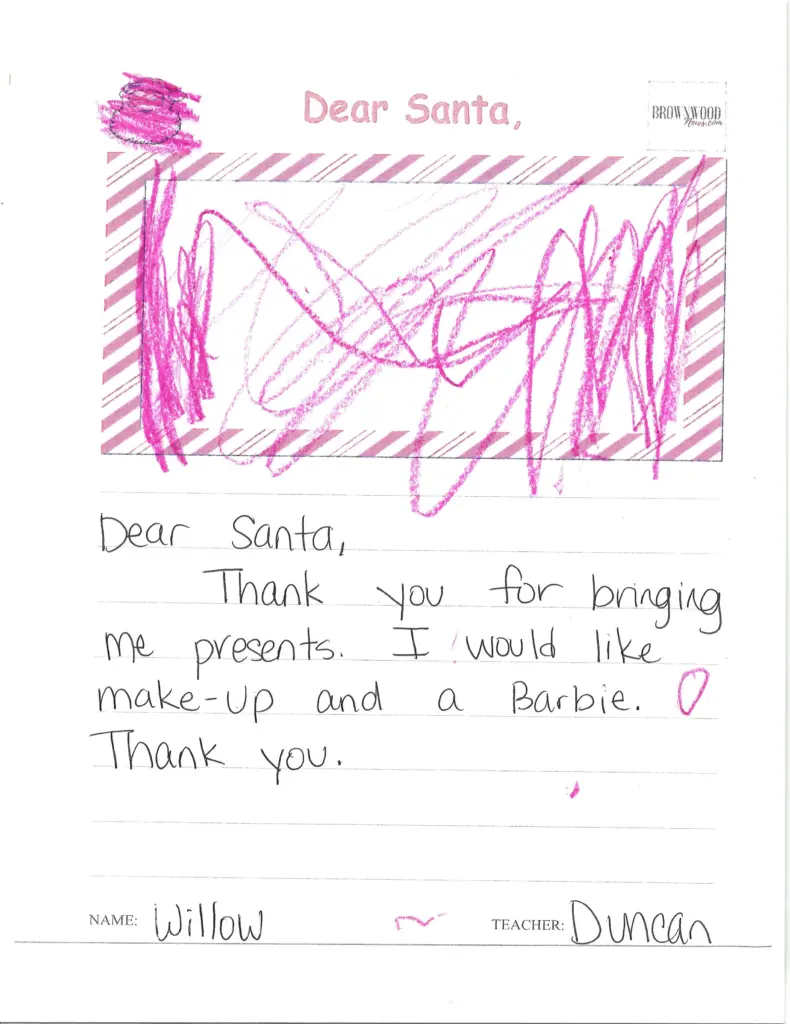 Dear Santa,
BROWNWOOD
News.com
Dear Santa,
Thank you for bringing
me presents. I would like
make-up and a Barbie.
Thank you.
NAME: Willow TEACHER: Duncan